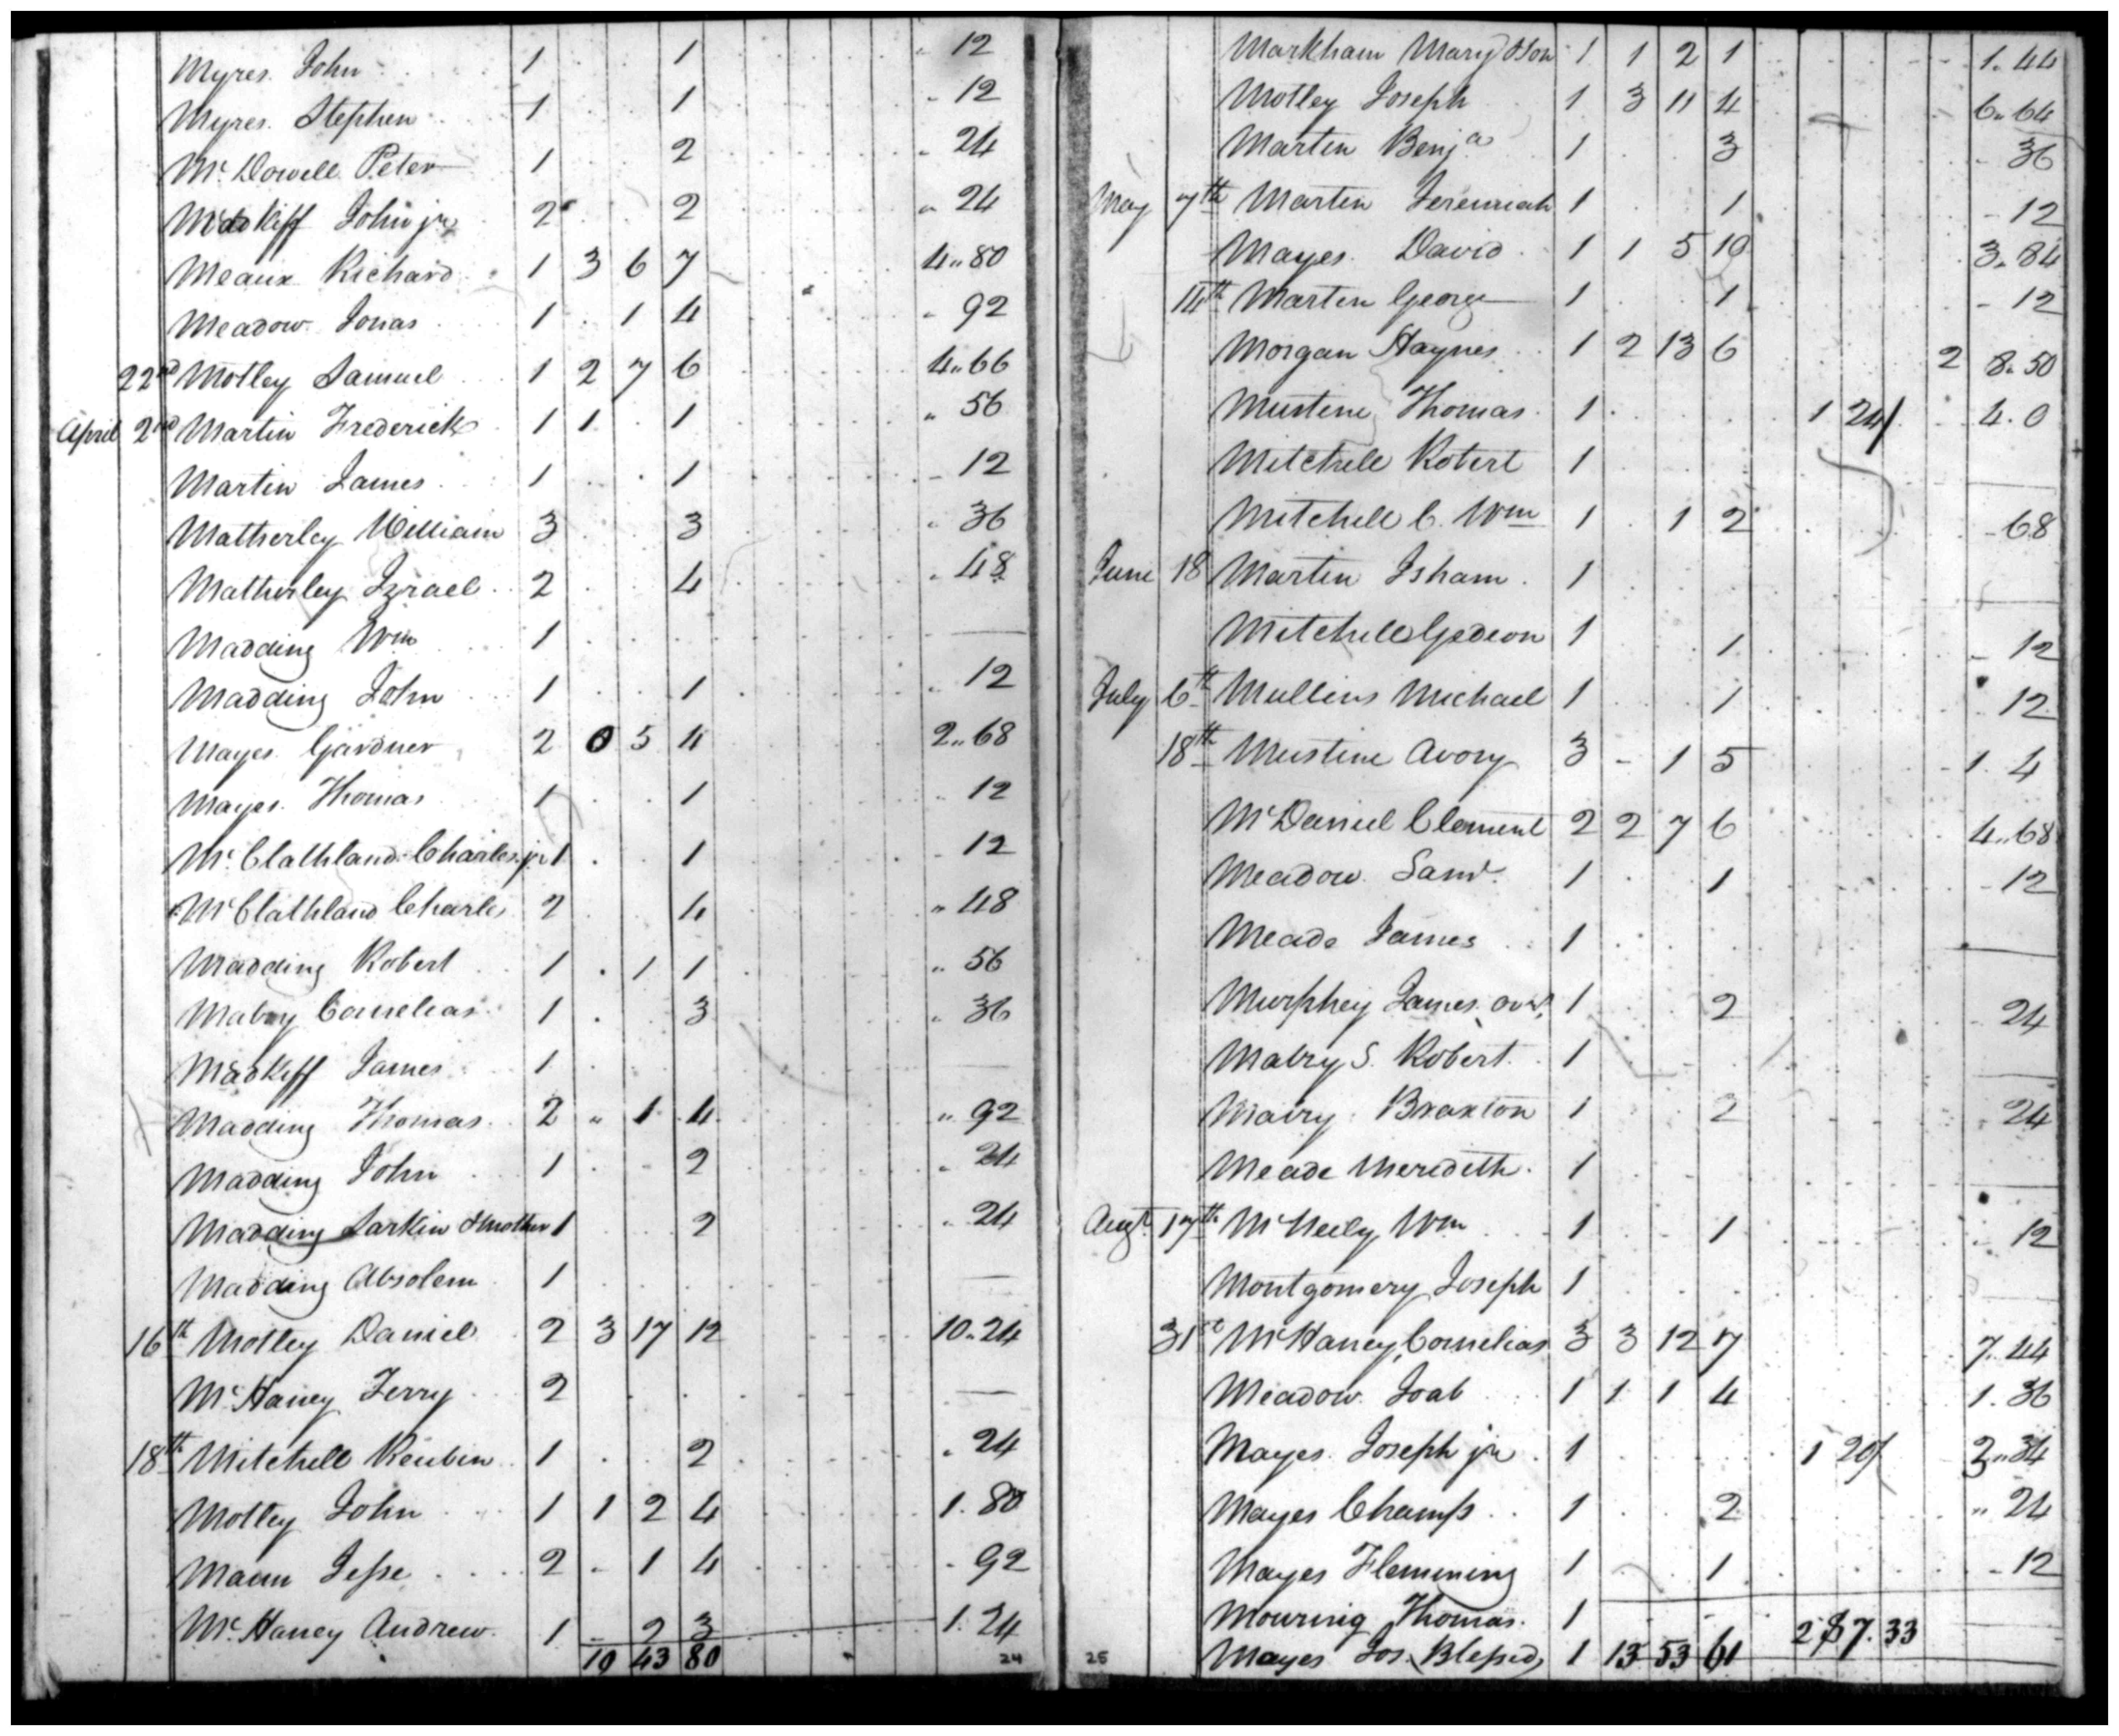 Myres John 1 1 12
Myres Stephen 1 1 12
Mc Dowell Peter 1 2 24
Madkiff John jr 2 2 24
Meaux Richard 1 3 6 7 4.. 80
Meadow Jonas 1 1 4 92
22nd Motley Samuel 1 2 7 6 4.. 66
April 2nd Martin Frederick 1 1 1 56
Martin James 1 1 12
Matherley William 3 3 36
Matherley Izrael 2 4 48
Madding Wm 1
Madding John 1 1 12
Mayes Gardner 2 0 5 4 2.. 68
Mayes Thomas 1 1 12
Mc Clathland Charles jr 1 1 12
Mc Clathland Charles 2 4 48
Madding Robert 1 1 1 56
Mabry Cornelias 1 3 36
Madkiff James 1
Madding Thomas 2 1 4 92
Madding John 1 2 24
Madding Larkin & mother 1 2 24
Madding Absolem 1
16th Motley Daniel 2 3 17 12 10.. 24
Mc Haney Terry 2
18th Mitchell Reubin 1 2 24
Motley John 1 1 2 4 1. 80
Maun Jesse 2 - 1 4 92
Mc Haney Andrew 1 - 2 3 1. 24
10 43 80
24
Markham Mary & Son 1 1 2 1 1. 44
Motley Joseph 1 3 11 4 6.. 64
Martin Benja 1 3 36
May 7th Martin Jeremiah 1 1 12
Mayes David 1 1 5 10 3. 84
14th Martin George 1 1 12
Morgan Haynes 1 2 13 6 2 8. 50
Mustene Thomas 1 1 24/ 4. 0
Mitchell Robert 1
Mitchell C. Wm 1 1 2 68
June 18 Martin Isham 1
Mitchell Gedeon 1 1 12
July 6th Mullins Michael 1 1 12
18th Mustine Avory 3 - 1 5 1. 4
Mc Daniel Clement 2 2 7 6 4.. 68
Meadow Saml 1 1 12
Meade James 1
Murphey James 1 2 24
Mabry S. Robert 1
Mabry Braxton 1 2 24
Meade Meredith 1
Augt 17th Mc Neely Wm 1 1 12
Montgomery Joseph 1
31st Mc Haney Cornelias 3 3 12 7 7. 44
Meadow Joab 1 1 1 4 1. 36
Mayes Joseph jr 1 1 20/ 3.. 34
Mayes Champ 1 2 24
Mayes Flemming 1 1 12
Mourning Thomas 1
Mayes Jos. Blessed 1 13 53 61 2 $7. 33
25